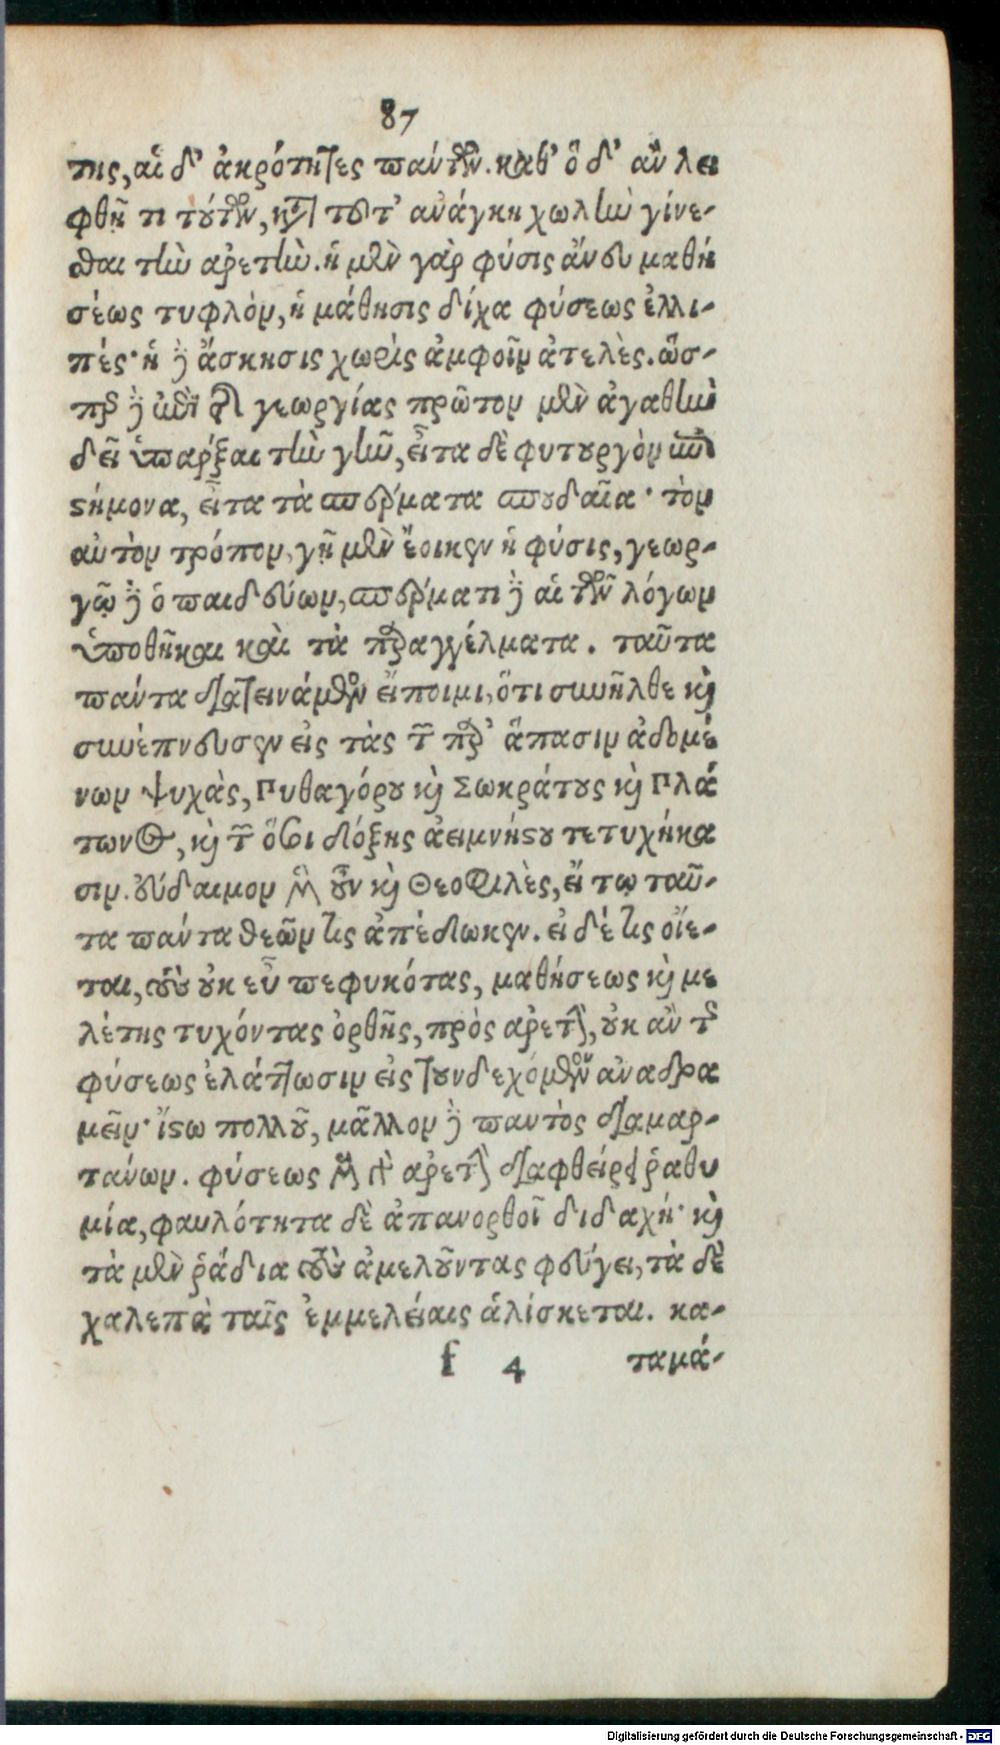 87
της, αἱ δ' ἀκρότητες πάντων. καθ' ὃ δ' ἂν λει
φθῇ τι τούτων, κατὰ τοῦτ' ἀνάγκη χωλὴν γίνε-
σθαι τὴν ἀρετήν. ἡ μὲν γὰρ φύσις ἄνευ μαθή
σέως τυφλὸν, ἡ μάθησις δίχα φύσεως ἐλλι-
πές· ἡ δὲ ἄσκησις χωρὶς ἀμφοῖν ἀτελὲς. ὥσ-
περ δὲ ἐπὶ τῆς γεωργίας πρῶτον μὲν ἀγαθὴν
δεῖ ὑπάρξαι τὴν γῆν, εἶτα δὲ φυτουργὸν ἐπι
στήμονα, εἶτα τὰ σπέρματα σπουδαῖα· τὸν
αὐτὸν τρόπον, γῇ μὲν ἔοικεν ἡ φύσις, γεωρ-
γῷ δὲ ὁ παιδεύων, σπέρματι δὲ αἱ τῶν λόγων
ὑποθῆκαι καὶ τὰ παραγγέλματα. ταῦτα
πάντα διατεινάμενος εἴποιμι, ὅτι συνῆλθε καὶ
συνέπνευσεν εἰς τὰς τῶν παρ' ἅπασιν ἀδομέ
νων ψυχὰς, Πυθαγόρου καὶ Σωκράτους καὶ Πλά
τωνος, καὶ τῶν ὅσοι δόξης ἀειμνήστου τετυχήκα
σιν. εὔδαιμον μὲν οὖν καὶ Θεοφιλὲς, εἴ τῳ ταῦ-
τα πάντα θεῶν τις ἀπέδωκεν. εἰ δέ τις οἴε-
ται, τοὺς οὐκ εὖ πεφυκότας, μαθήσεως καὶ με
λέτης τυχόντας ὀρθῆς, πρὸς ἀρετὴν, οὐκ ἂν τὸ
φύσεως ἐλάττωσιν εἰς τοὐνδεχόμενον ἀναδρα
μεῖν· ἴστω πολλοῦ, μᾶλλον δὲ παντὸς διαμαρ-
τάνων. φύσεως μὲν γὰρ ἀρετὴν διαφθείρει ῥαθυ
μία, φαυλότητα δὲ ἀπανορθοῖ διδαχή· καὶ
τὰ μὲν ῥάδια τοὺς ἀμελοῦντας φεύγει, τὰ δὲ
χαλεπὰ ταῖς ἐμμελείαις ἁλίσκεται. κα-
f 4 ταμά-
Digitalisierung gefördert durch die Deutsche Forschungsgemeinschaft - DFG